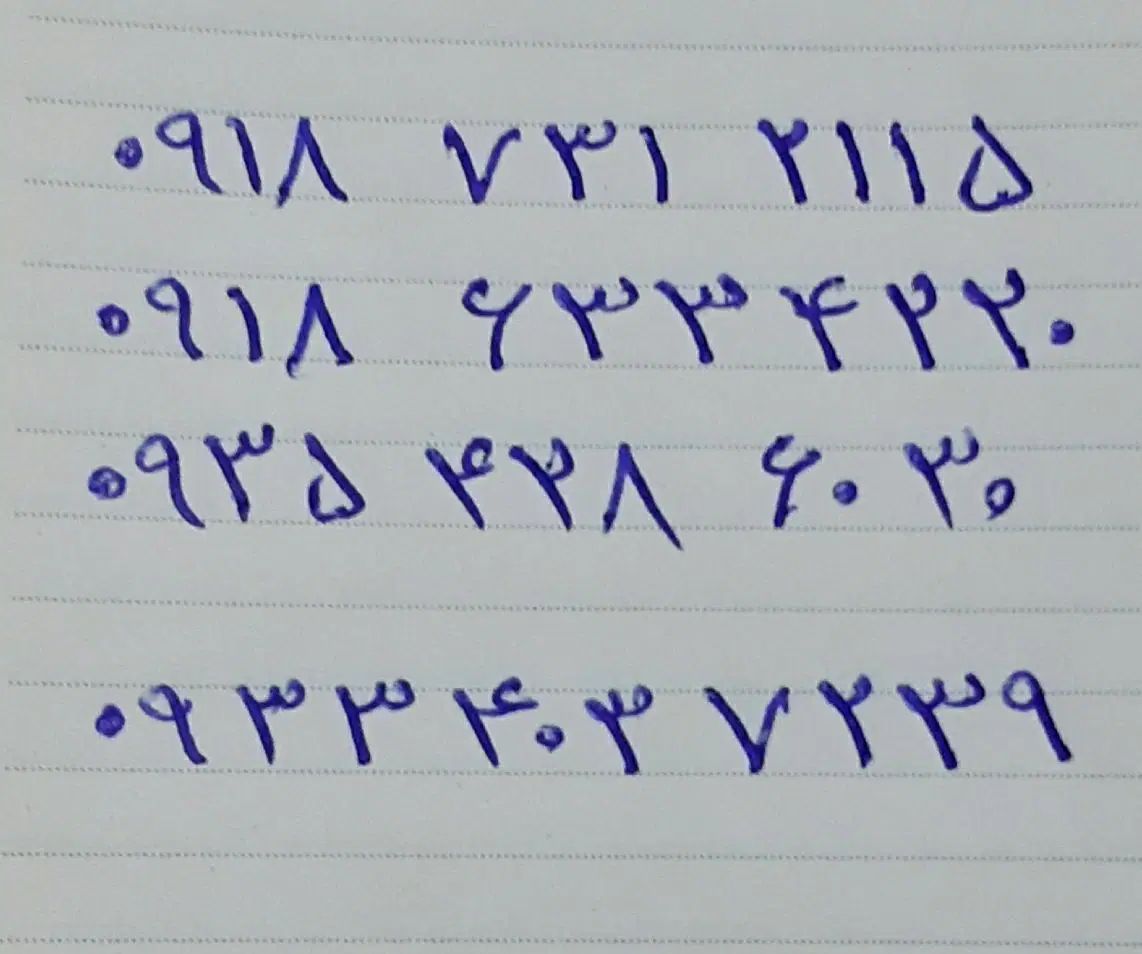 ۰۹۱۸ ۷۳۱ ۲۱۱۵
۰۹۱۸ ۶۳۳۴۲۲۰
۰۹۳۵ ۴۲۸ ۶۰۳۰
۰۹۳۳ ۴۰۳ ۷۲۳۹